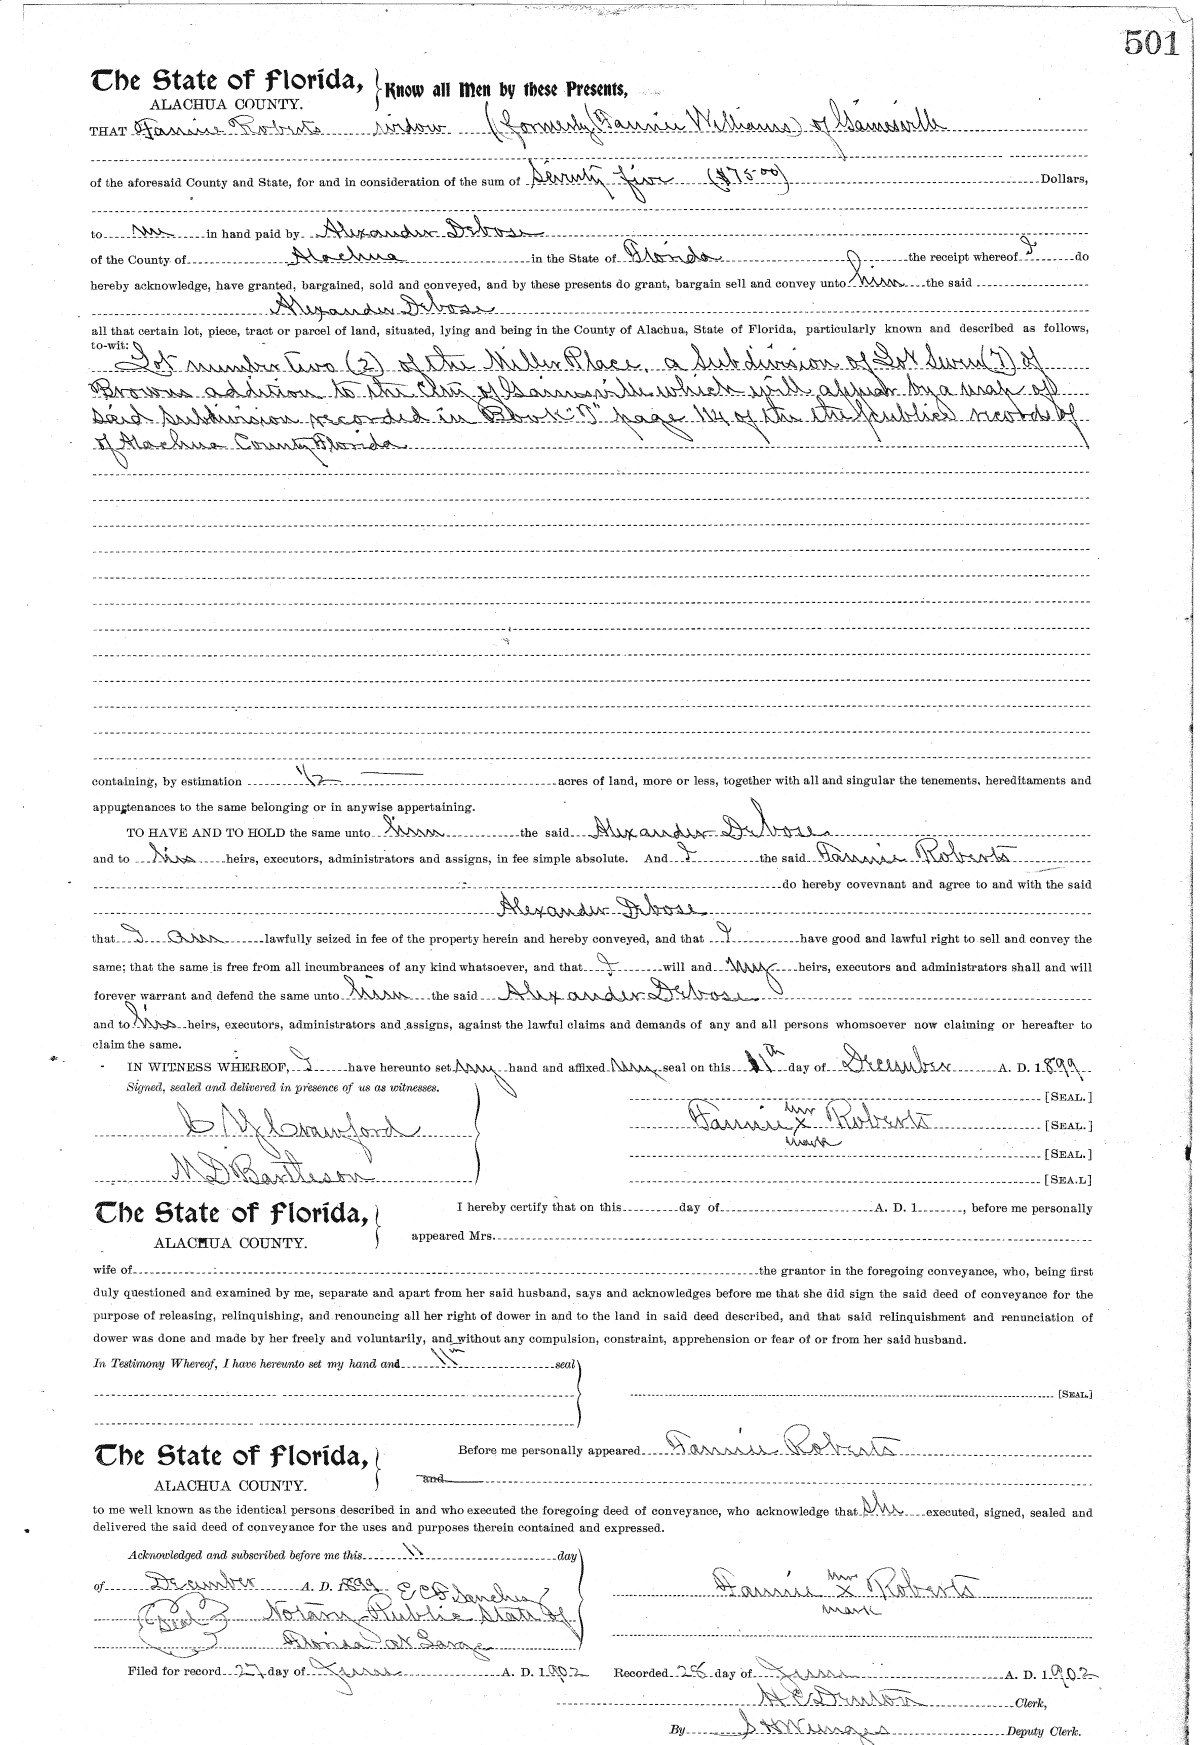 501
The State of Florida, Know all Men by these Presents,
ALACHUA COUNTY.
THAT Fannie Roberts widow (formerly Fannie Williams) of Gainesville
of the aforesaid County and State, for and in consideration of the sum of Seventy five ($75.00) Dollars,
to me in hand paid by Alexander Debose
of the County of Alachua in the State of Florida the receipt whereof I do
hereby acknowledge, have granted, bargained, sold and conveyed, and by these presents do grant, bargain sell and convey unto him the said
Alexander Debose
all that certain lot, piece, tract or parcel of land, situated, lying and being in the County of Alachua, State of Florida, particularly known and described as follows,
to-wit:
Lot number two (2) of the Miller Place, a Subdivision of Lot Seven (7) of
Browns addition to the City of Gainesville which will appear by a map of
said Subdivision recorded in Book page 114 of the the public records of
of Alachua County Florida
containing, by estimation 1/2 acres of land, more or less, together with all and singular the tenements, hereditaments and
appurtenances to the same belonging or in anywise appertaining.
TO HAVE AND TO HOLD the same unto him the said Alexander Debose
and to his heirs, executors, administrators and assigns, in fee simple absolute. And I the said Fannie Roberts
do hereby covevnant and agree to and with the said
Alexander Debose
that I am lawfully seized in fee of the property herein and hereby conveyed, and that I have good and lawful right to sell and convey the
same; that the same is free from all incumbrances of any kind whatsoever, and that I will and my heirs, executors and administrators shall and will
forever warrant and defend the same unto him the said Alexander Debose
and to his heirs, executors, administrators and assigns, against the lawful claims and demands of any and all persons whomsoever now claiming or hereafter to
claim the same.
IN WITNESS WHEREOF, I have hereunto set my hand and affixed my seal on this 11th day of December A. D. 1899
Signed, sealed and delivered in presence of us as witnesses. [SEAL.]
Crawford Fannie her x mark Roberts [SEAL.]
[SEAL.]
M D Bartleson [SEA.L]
The State of Florida, I hereby certify that on this day of A. D. 1 , before me personally
ALACHUA COUNTY. appeared Mrs.
wife of the grantor in the foregoing conveyance, who, being first
duly questioned and examined by me, separate and apart from her said husband, says and acknowledges before me that she did sign the said deed of conveyance for the
purpose of releasing, relinquishing, and renouncing all her right of dower in and to the land in said deed described, and that said relinquishment and renunciation of
dower was done and made by her freely and voluntarily, and without any compulsion, constraint, apprehension or fear of or from her said husband.
In Testimony Whereof, I have hereunto set my hand and 11th seal
[SEAL.]
The State of Florida, Before me personally appeared Fannie Roberts
ALACHUA COUNTY. and
to me well known as the identical persons described in and who executed the foregoing deed of conveyance, who acknowledge that she executed, signed, sealed and
delivered the said deed of conveyance for the uses and purposes therein contained and expressed.
Acknowledged and subscribed before me this 11 day
of December A. D. 1899 Sanchez Fannie her x mark Roberts
(Seal) Notary Public State of
Florida at Large
Filed for record 27 day of June A. D. 1902 Recorded 28 day of June A. D. 1902
H C Denton Clerk,
By S H Wienges Deputy Clerk.